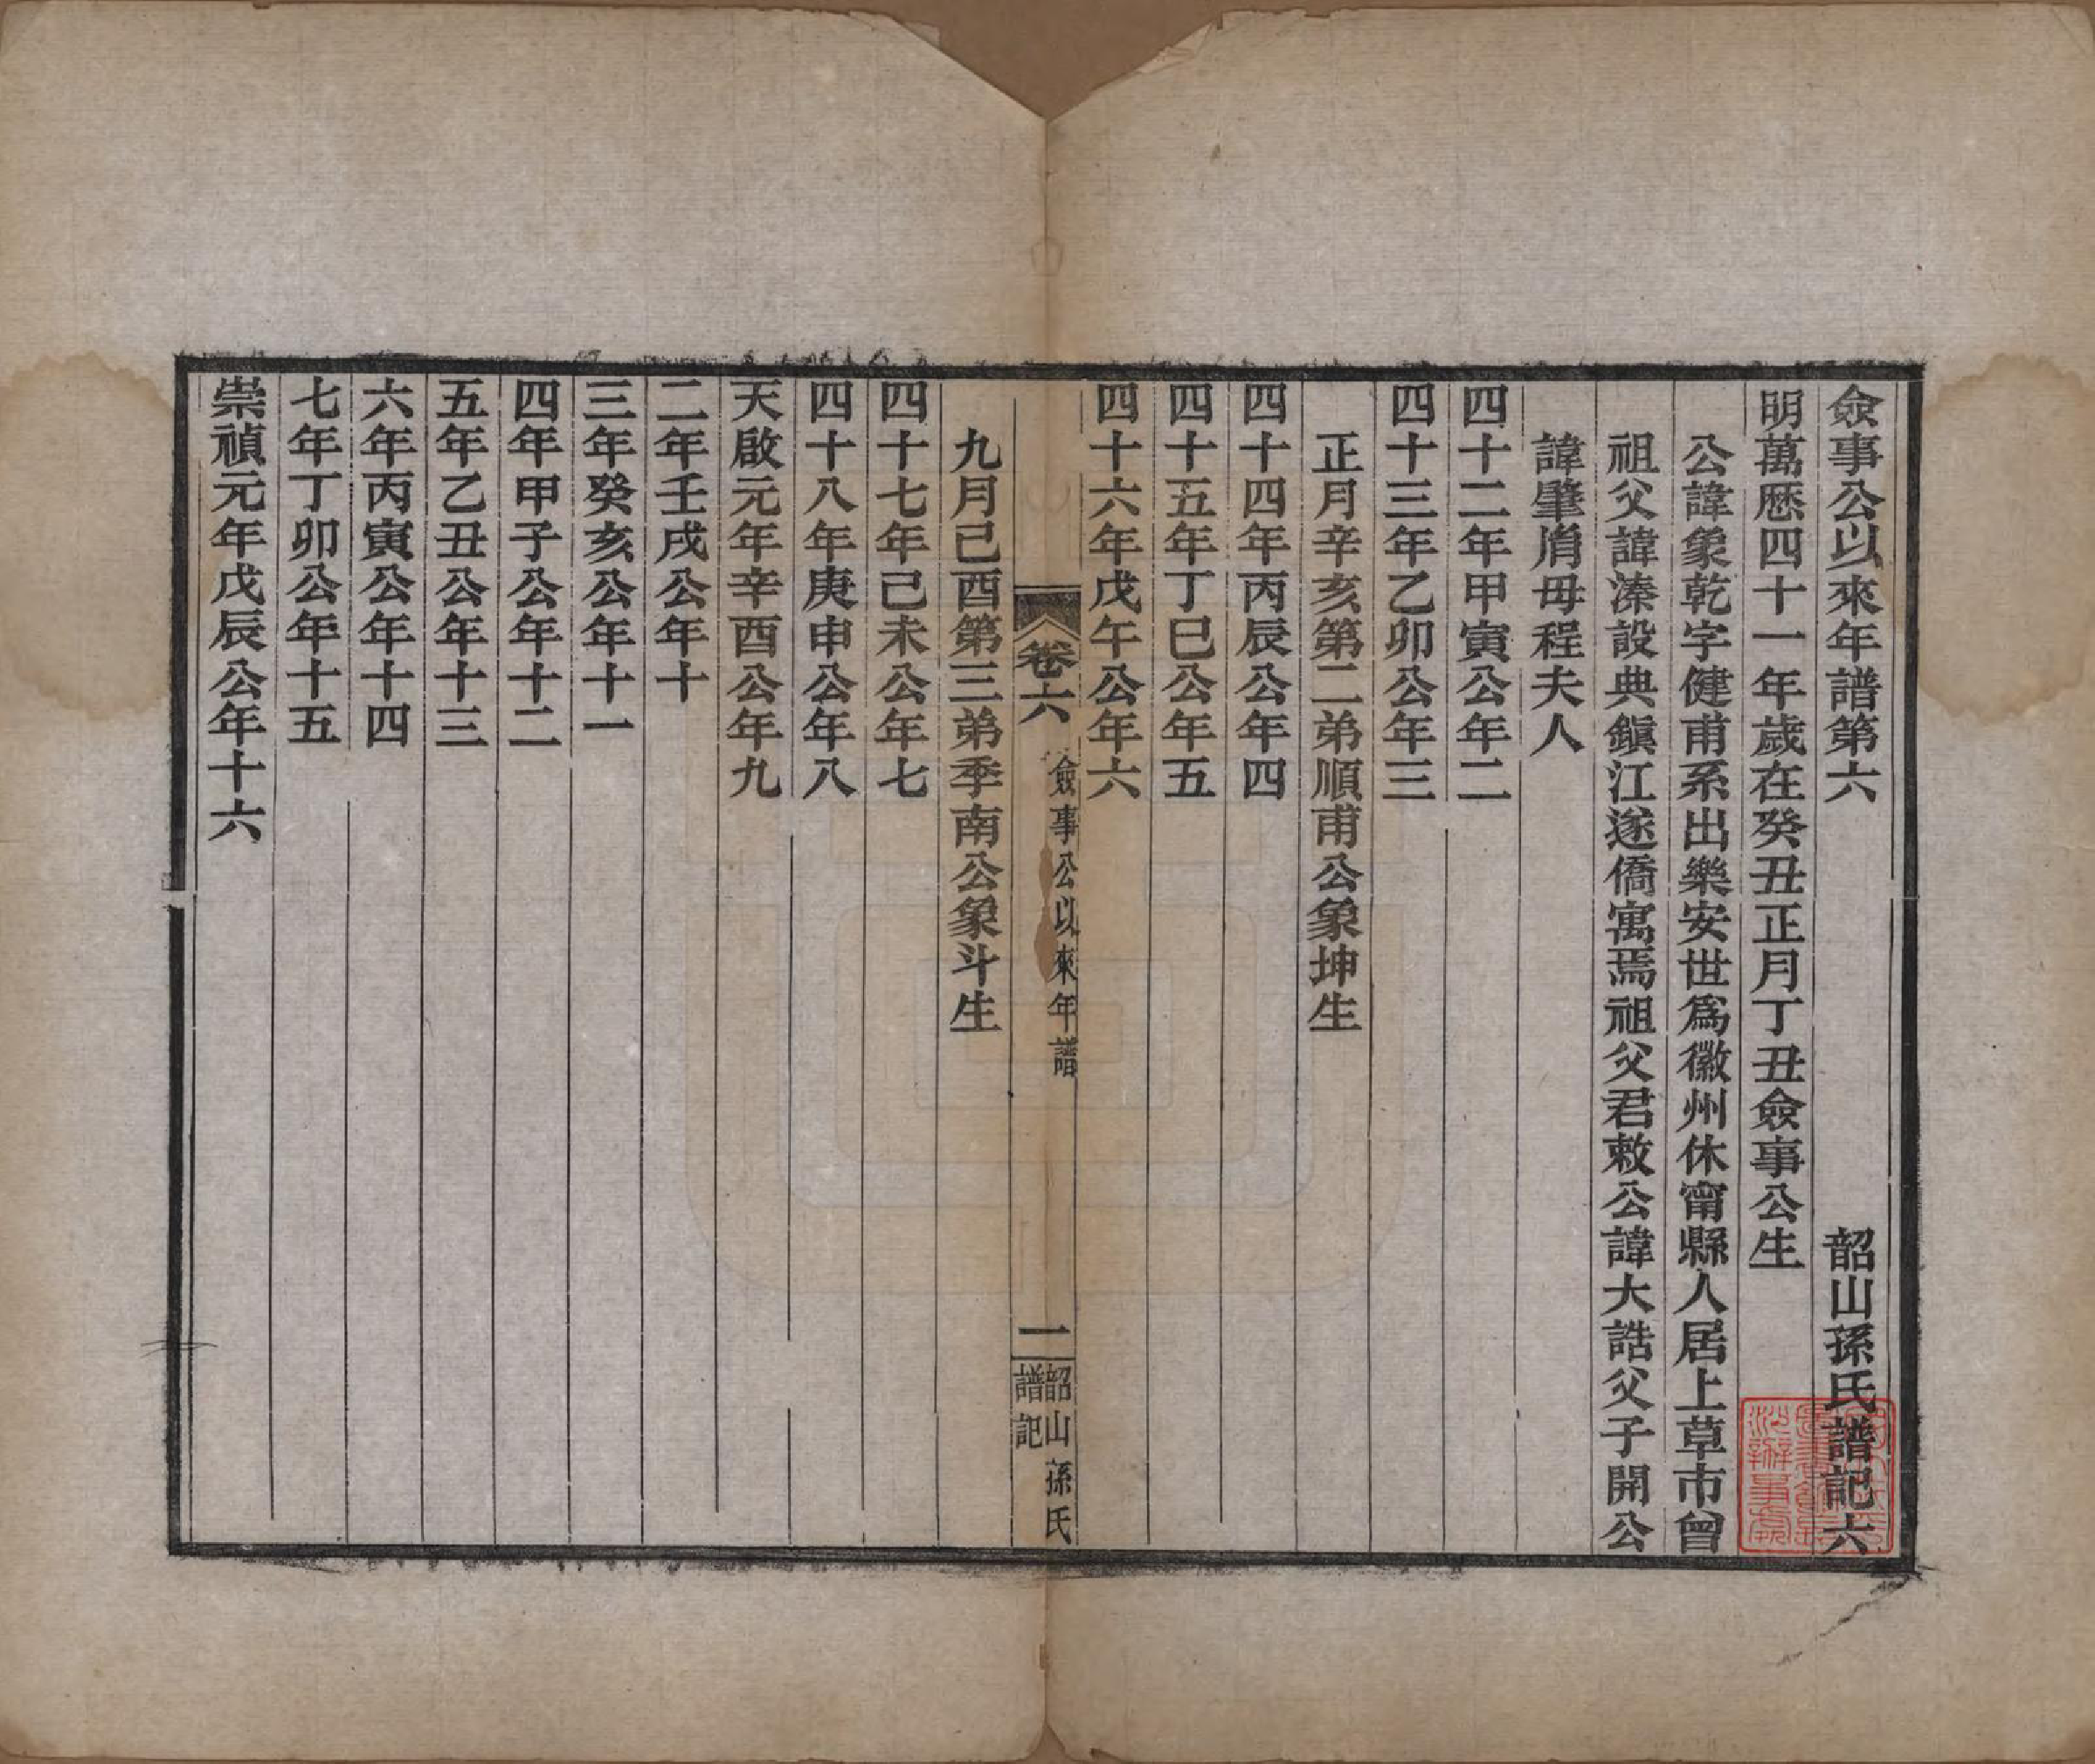 僉事公以來年譜第六　韶山孫氏譜記六
明萬厯四十一年歲在癸丑正月丁丑僉事公生
公諱象乾字健甫系出樂安世爲徽州休甯縣人居上草市曾
祖父諱溱設典鎭江遂僑寓焉祖父君敕公諱大誥父子開公
諱肇脢母程夫人
四十二年甲寅公年二
四十三年乙卯公年三
正月辛亥第二弟順甫公象坤生
四十四年丙辰公年四
四十五年丁巳公年五
四十六年戊午公年六
卷六　僉事公以來年譜　一　韶山孫氏譜記
九月己酉第三弟季南公象斗生
四十七年己未公年七
四十八年庚申公年八
天啟元年辛酉公年九
二年壬戌公年十
三年癸亥公年十一
四年甲子公年十二
五年乙丑公年十三
六年丙寅公年十四
七年丁卯公年十五
崇禎元年戊辰公年十六